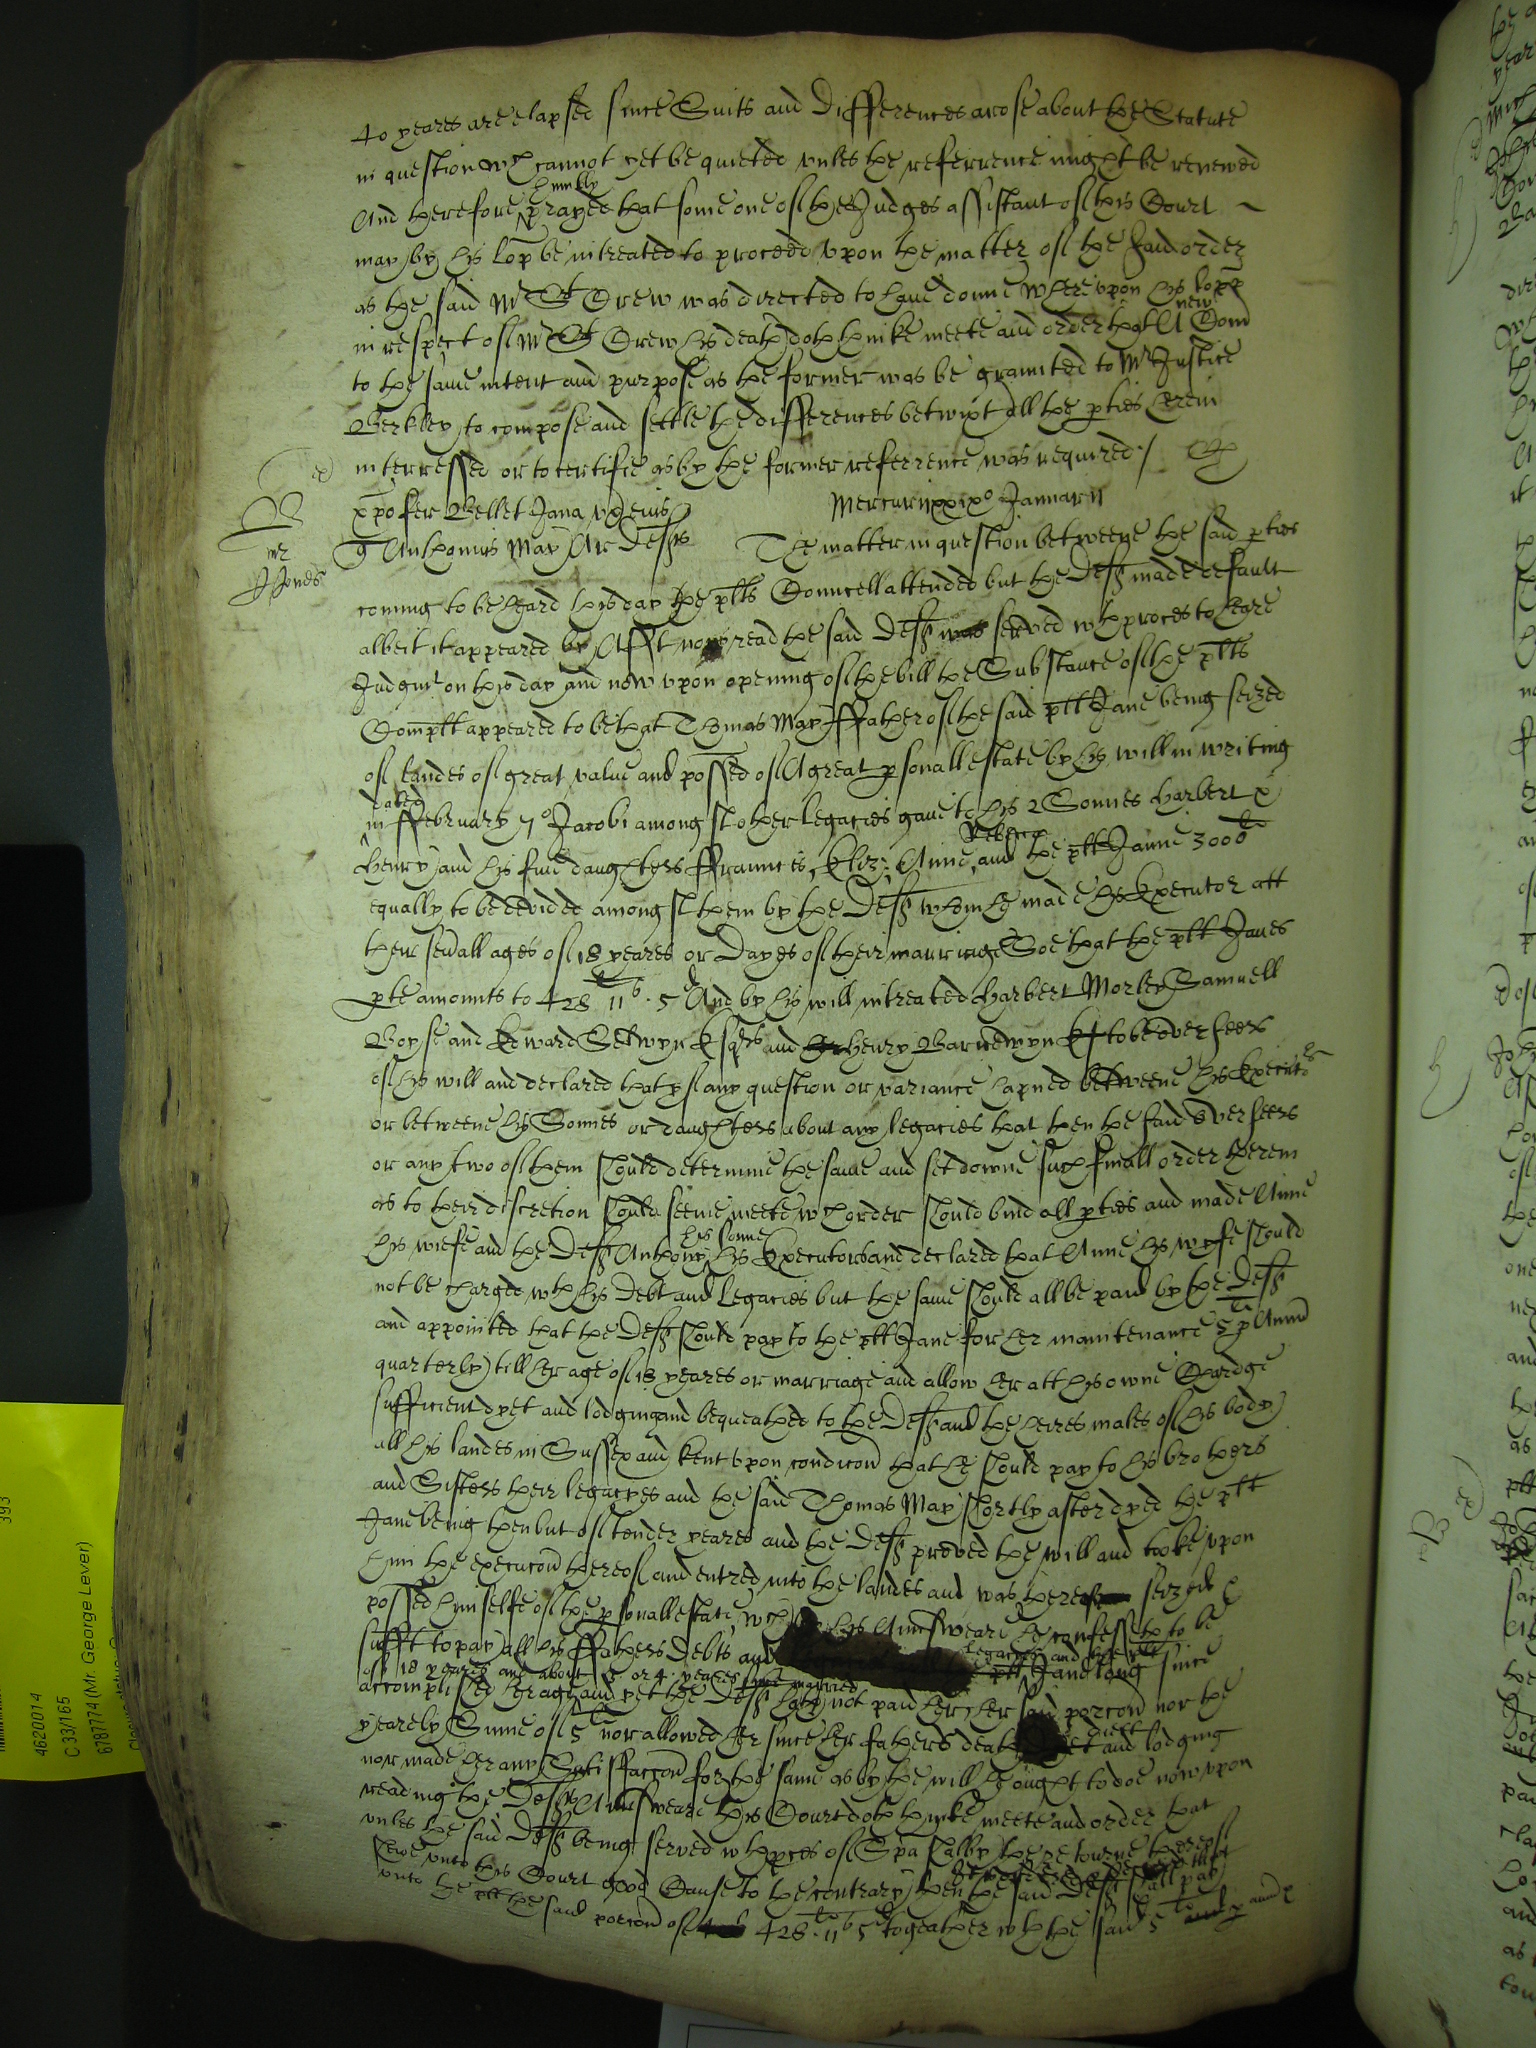 40 yeares are elapsed since Suits and Differences arose about the Statute
in question wch cannot yet be quieted unles the referrence might be renewed
And therefore humbly prayed that some one of the Judges assistant of this Court
may by his Lop be intreated to proceed upon the matter of the said order
as the said Mr St Drew was directed to have donne whereupon his lopp
in respect of Mr St Drew his death doth thinke meete and order that A new Com
to the same intent and purpose as the former was be graunted to Mr Justice
Berkley to compose and settle the differences betwixt all the pties herein
interressed or to certifie as by the former referrence was required /
Mercurii xxixo Januarii
xpofer Bellet Jana ux eius
Anthonius May Ar Deft The matter in question betweene the said pties
coming to be heard this day the plts Councell attended but the Deft made default
albeit it appeared by Afft now read the said Deft was served wth proces to heare
Judgmt on this day and now upon opening of the bill the Substance of the plts
Complt appeared to be that Thomas May ffather of the said plt Jane being seized
of landes of great value and possed of A great psonall estate by his will in writing
dated
in ffebruary 7o Jacobi amongst other legacies gave to his 2 Sonnes Harbert &
Rebecca
Henry and his five daughters ffraunces, Eliz: Anne, and the plt Jane 3000li
equally to be devided amongst them by the Deft whom he made his Executor att
their seuall ages of 18 yeares or Dayes of their marriage Soe that the plt Janes
pte amounts to 428li 11s . 5d And by his will intreated Harbert Morley Samuell
Boyse and Edward Selwyn Esqrs and Henry Barndwyn to be overseers
of his will and declared that yf any question or variance hapned betweene his Executors
or betweene his Sonnes or daughters about any legacies that then the said overseers
or any two of them should determine the same and set downe such finall order therein
as to their discretion should seeme meete wch order should bind all pties and made Anne
his sonne
his wiefe and the Deft Anthony his Executors and declared that Anne his wyfe should
not be charged wth his Debt and Legacies but the same should all be paid by the Deft
and appointed that the Deft should pay to the plt Jane for her maintenance 5li p Annu
quarterly till her age of 18 yeares or marriage and allow her att his owne Chardge
sufficient dyet and lodging and bequeathed to the Deft and the heires males of his body
all his landes in Sussex and Kent upon condicon that he should pay to his brothers
and Sisters their legacyes and the said Thomas May shortly after dyed the plt
Jane being then but of tender yeares and the Deft proved the will and tooke upon
him the execucon thereof and entred into the landes and was thereof seized &
possed himselfe of the psonall estate wch his Answeare he confesseth to be
suffit to pay all his ffathers Debts and legacies and the plt Jane long since
of 18 yeares and about 3 or 4 yeares since married
accomplished her age and yet the Deft hath not paid her her said porcon nor the
yearely Summe of 5li nor allowed her since her fathers death diet and lodging
nor made her any Satisfaccon for the same as by the will he ought to doe now upon
reading the Defts Answeare this Court doth thinke meete and order that
unles the said Deft being served wth pces of Spa shall by the retourne thereof
shew unto this Court good Cause to the contrary then the said Deft shall pay
unto the plt the said porcon of 428li . 11s 5d togeather wth the said 5li
mr
Jones
4620014
C 33/165
6787774 (Mr. George Lever)
393